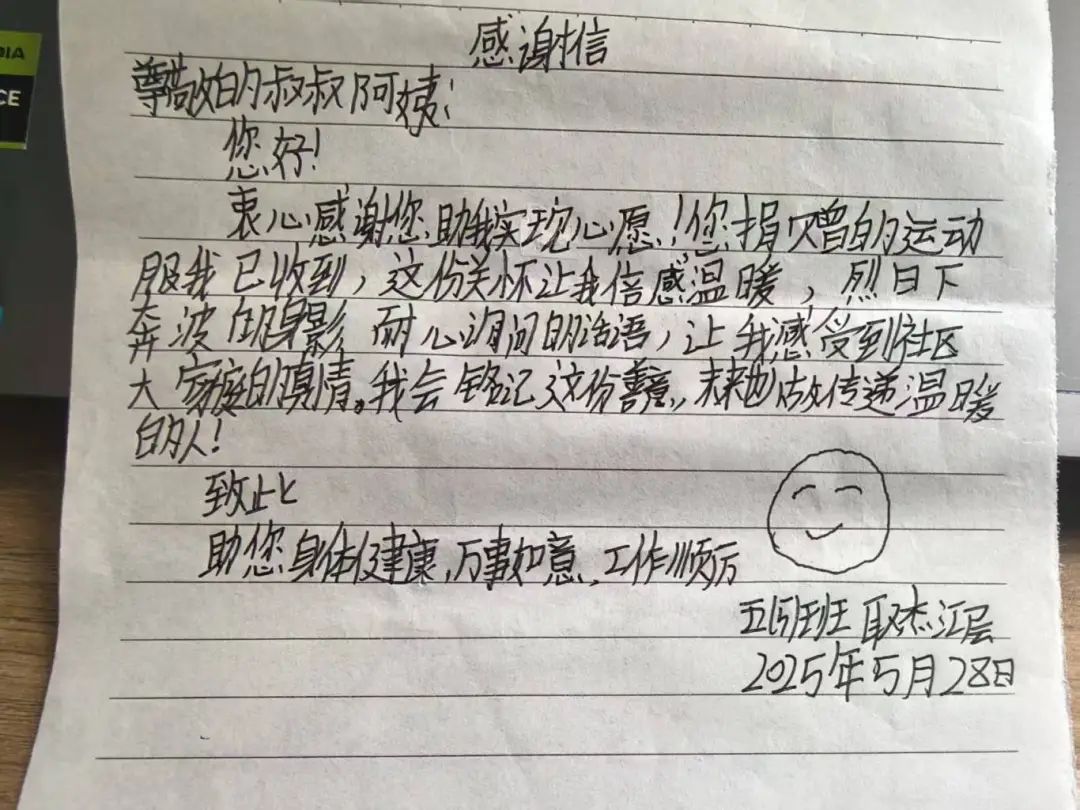 感谢信
尊敬的叔叔阿姨:
您好!
衷心感谢您助我实现心愿!您捐赠的运动
服我已收到,这份关怀让我倍感温暖,烈日下
奔波的身影 耐心询问的话语,让我感受到社区
大家庭的真情。我会铭记这份善意,未来也做传递温暖
的人!
致此
助您身体健康,万事如意,工作顺历
班
2025年5月28日
DIA
CE